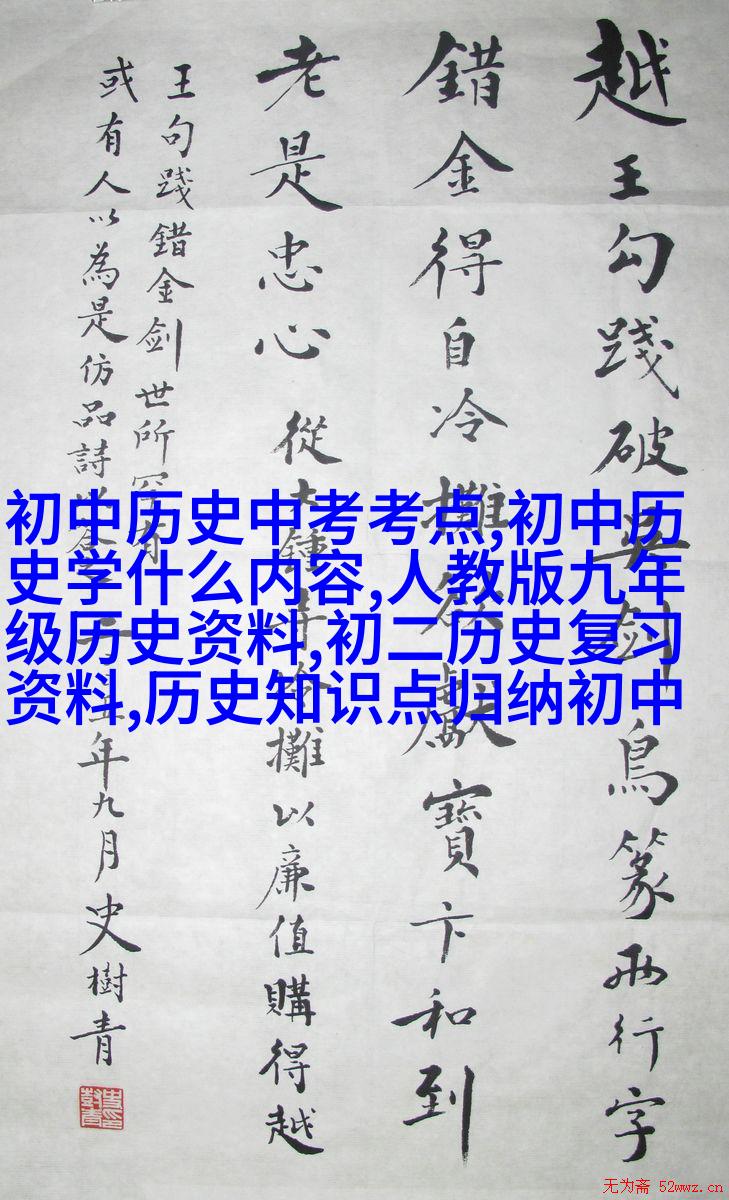 越王勾踐破吳劍鳥篆兩行字
錯金得自冷攤欲獻寶卞和到
老是忠心 從大鐘寺冷攤以廉值購得越
王句踐錯金劍世所罕有
或有人以為是仿品詩以 五年九月史樹青
初中历史中考考点,初中历
史学什么内容,人教版九年
级历史资料,初二历史复习
资料,历史知识点归纳初中
无为斋 52wwz.cn